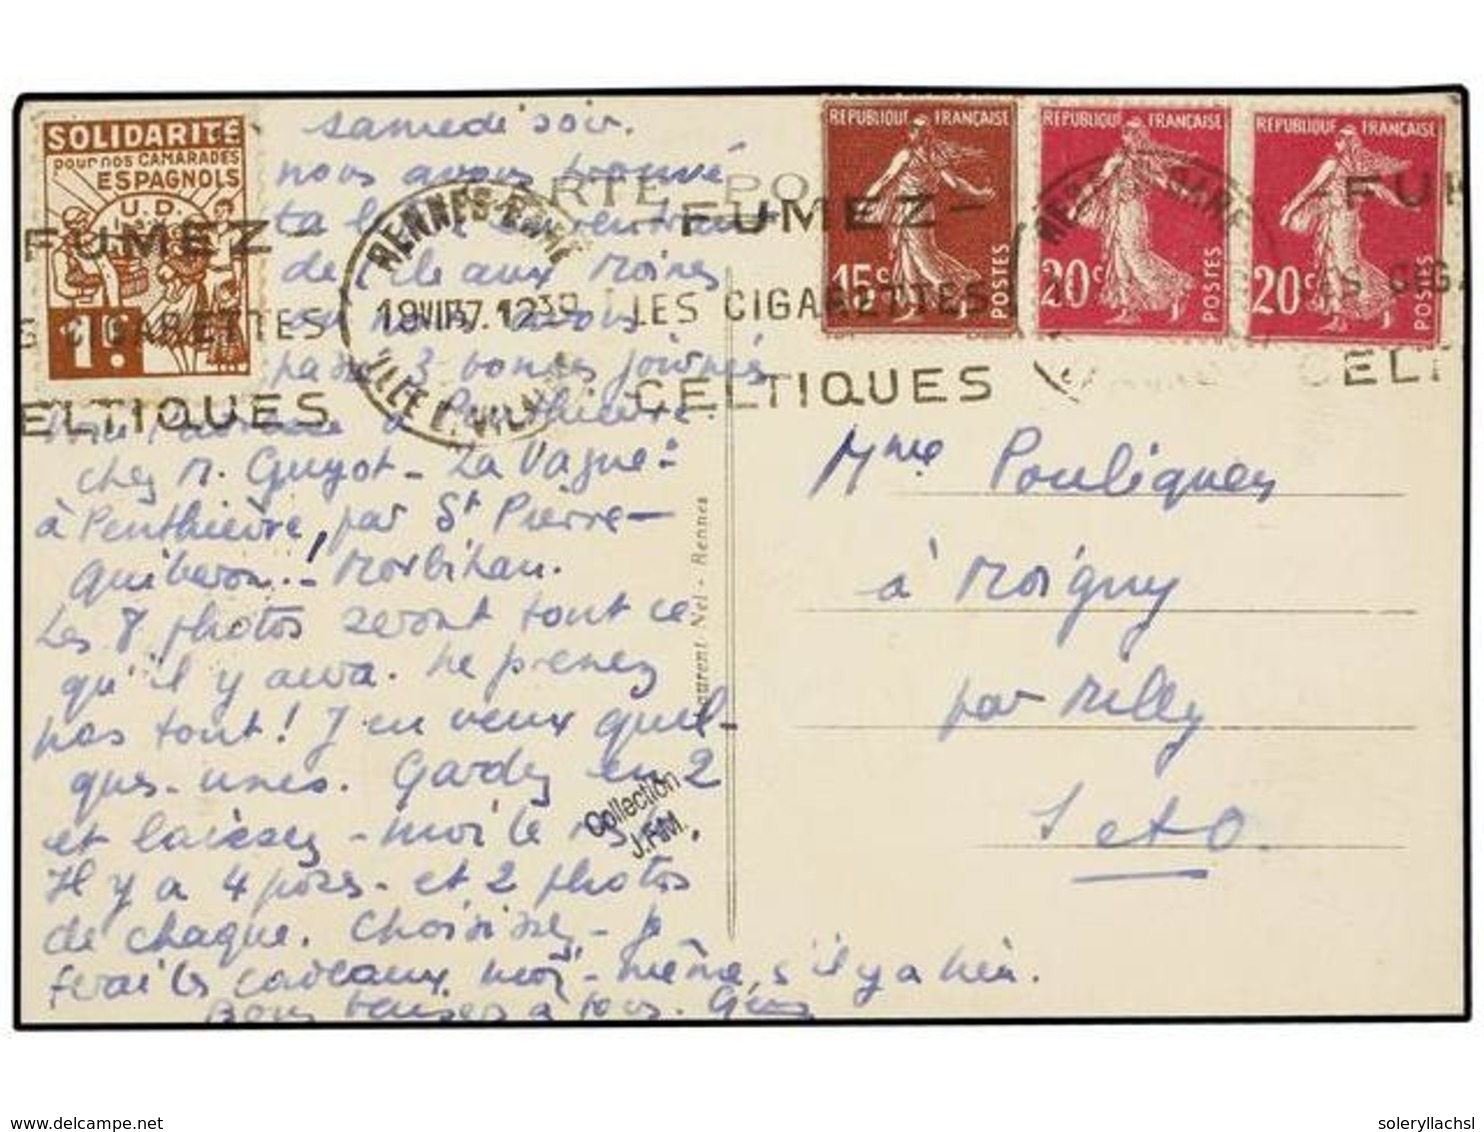 SOLIDARITÉ
pour nos CAMARADES
ESPAGNOLS
U.D.
1F.
samedi soir.
nous avons trouvé
ta
de l'île aux Moines
où nous avons
passé 3 bonnes journées
à Penthièvre
chez M. Guyot - La Vague -
à Penthièvre, par St Pierre -
Quiberon! - Morbihan.
Les 8 photos seront tout ce
qu'il y aura. Ne prenez
pas tout! J'en veux quel-
ques-unes. Gardez en 2
et laissez-moi le
Il y a 4 poses - et 2 photos
de chaque. Choisissez - je
ferai les cadeaux moi-même, s'il y a lieu.
Bons baisers à tous.
CARTE PO
RENNES-GARE
19 VII 37. 12 30
ILLE ET VILAINE
FUMEZ -
LES CIGARETTES
CELTIQUES
FUMEZ -
CIGARETTES
ELTIQUES
RÉPUBLIQUE FRANÇAISE
15c
POSTES
RÉPUBLIQUE FRANÇAISE
20c
POSTES
RÉPUBLIQUE FRANÇAISE
20c
POSTES
RENNES GARE
FU
S CIGA
CELT
Laurent Nel - Rennes
Mme Pouliquen
à Moigny
par Milly
S et O.
Collection
J.F.M.
www.delcampe.net
soleryllachsl